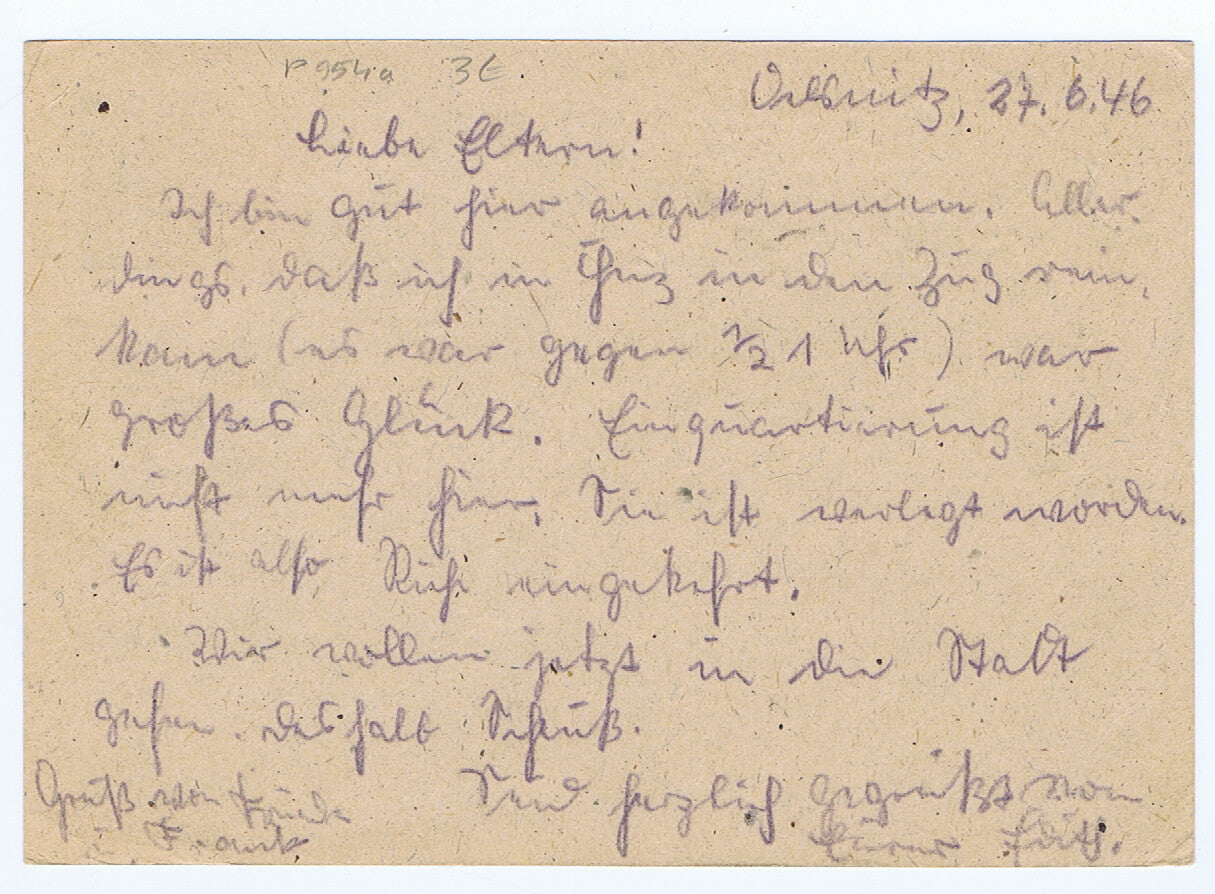 P 954a 3€
Oelsnitz, 27. 6. 46.
Liebe Eltern!
Ich bin gut hier angekommen. Aller-
dings, daß ich in in den Zug rein-
kam (es war gegen 1/2 1 Uhr) war
großes Glück. Einquartierung ist
nicht mehr hier, Sie ist verlegt worden.
Es ist also Ruhe eingekehrt.
Wir wollen jetzt in die Stadt
gehen. deshalb Schluß.
Seid herzlich gegrüßt von
Eurer
Gruß von
u. Frank